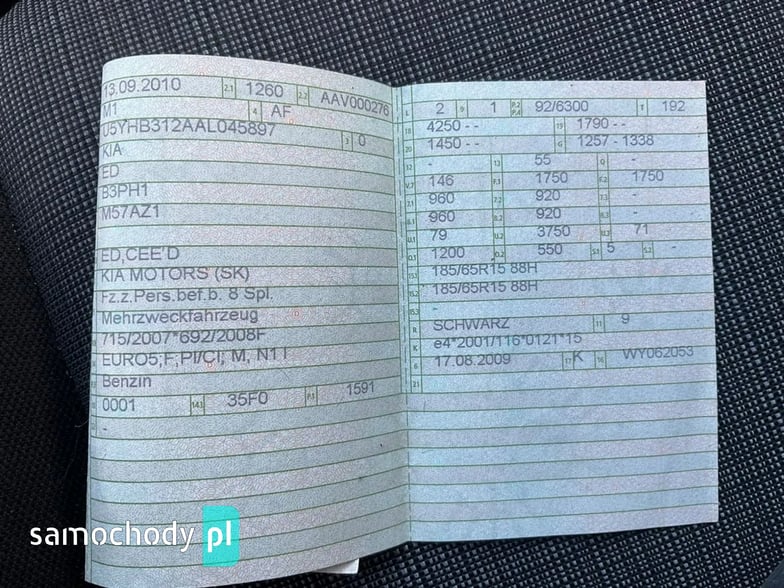 13.09.2010 2.1 1260 2.2 AAV000276
M1 4 AF
U5YHB312AAL045897 3 0
KIA
ED
B3PH1
M57AZ1
ED,CEE'D
KIA MOTORS (SK)
Fz.z.Pers.bef.b. 8 Spl.
Mehrzweckfahrzeug
715/2007*692/2008F
EURO5;F,PI/CI; M, N1 I
Benzin
0001 14.1 35F0 P.1 1591
-
L 2 9 1 P.2 P.4 92/6300 T 192
18 4250 - - 19 1790 - -
20 1450 - - G 1257 - 1338
12 - 13 55 Q -
V.7 146 F.1 1750 F.2 1750
7.1 960 7.2 920 7.3 -
8.1 960 8.2 920 8.3 -
U.1 79 U.2 3750 U.3 71
O.1 1200 O.2 550 S.1 5 S.2 -
15.1 185/65R15 88H
15.2 185/65R15 88H
15.3 -
R SCHWARZ 11 9
K e4*2001/116*0121*15
6 17.08.2009 17 K 16 WY062053
21
samochody pl